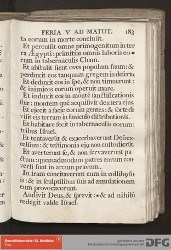 FERIA V AD MATUT. 183
ta eorum in morte conclusit.
Et percussit omne primogenitum in ter
ra Ægypti: primitias omnis laboris eo
rum in tabernaculis Cham.
Et abstulit sicut oves populum suum: &
perduxit eos tanquam gregem in deserto.
Et deduxit eos in spe, & non timuerunt:
& inimicos eorum operuit mare.
Et induxit eos in montem sanctificationis
suæ: montem quem acquisivit dextera ejus.
Et ejecit a facie eorum gentes: & sorte di
visit eis terram in funiculo distributionis.
Et habitare fecit in tabernaculis eorum:
tribus Israel.
Et tentaverunt & exacerbaverunt Deum
excelsum: & testimonia ejus non custodierunt.
Et averterunt se, & non servaverunt pa
ctum: quemadmodum patres eorum con
versi sunt in arcum pravum.
In iram concitaverunt eum in collibus
suis: & in sculptilibus suis ad æmulationem
eum provocaverunt.
Audivit Deus, & sprevit: & ad nihilum
redegit valde Israel.